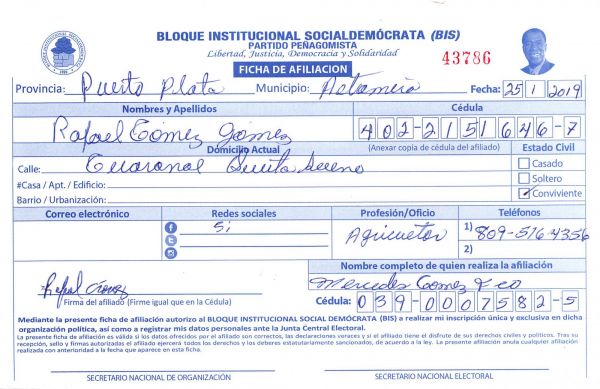 BLOQUE INSTITUCIONAL SOCIALDEMÓCRATA (BIS)
PARTIDO PEÑAGOMISTA
Libertad, Justicia, Democracia y Solidaridad
43786
FICHA DE AFILIACION
Provincia: Puerto Plata Municipio: Altamira Fecha: 25 1 2019
Nombres y Apellidos Cédula
Rafael Gómez Gómez 402-2151646-7
Domicilio Actual (Anexar copia de cédula del afiliado) Estado Civil
Calle: Quinta Casado
#Casa / Apt. / Edificio: Soltero
Barrio / Urbanización: Conviviente
Correo electrónico Redes sociales Profesión/Oficio Teléfonos
Si Agricultor 1) 809-516-4356
2)
Nombre completo de quien realiza la afiliación
Rafael Gómez Mercedes Gomez
Firma del afiliado (Firme igual que en la Cédula) Cédula: 039-0007582-5
Mediante la presente ficha de afiliación autorizo al BLOQUE INSTITUCIONAL SOCIAL DEMÓCRATA (BIS) a realizar mi inscripción única y exclusiva en dicha
organización política, así como a registrar mis datos personales ante la Junta Central Electoral.
La presente ficha de afiliación es válida si los datos ofrecidos por el afiliado son correctos, las declaraciones veraces y si el afiliado tiene el disfrute de sus derechos civiles y políticos. Tras su
recepción, sello y firmas autorizadas el afiliado ejercerá todos los derechos y los deberes estatutariamente sancionados, de acuerdo a la ley. La presente afiliación anula cualquier afiliación
realizada con anterioridad a la fecha que aparece en esta ficha.
SECRETARIO NACIONAL DE ORGANIZACIÓN SECRETARIO NACIONAL ELECTORAL